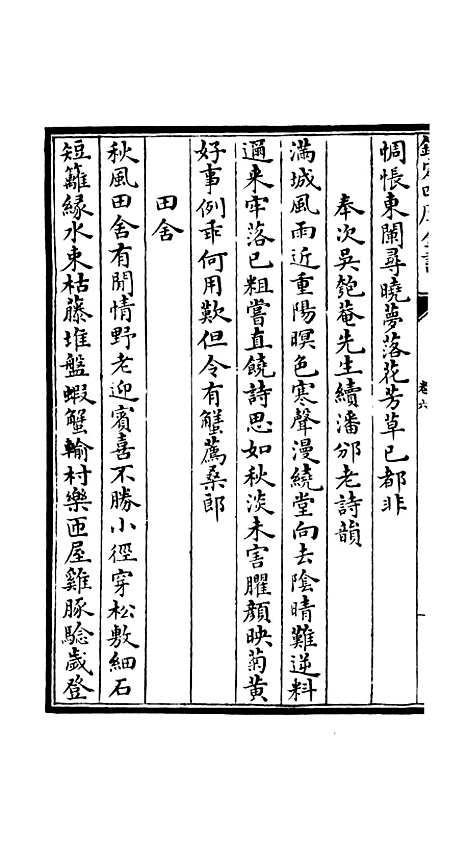 惆悵東闌尋曉夢落花芳草已都非
奉次吳匏菴先生續潘邠老詩韻
滿城風雨近重陽暝色寒聲漫繞堂向去陰晴難逆料
邇来牢落已粗嘗直饒詩思如秋淡未害臞顔映菊黄
好事例乖何用歎但令有蟹薦桑郎
田舍
秋風田舍有閒情野老迎賓喜不勝小徑穿松敷細石
短籬縁水束枯藤堆盤蝦蟹輸村樂匝屋雞豚騐歲登
卷六